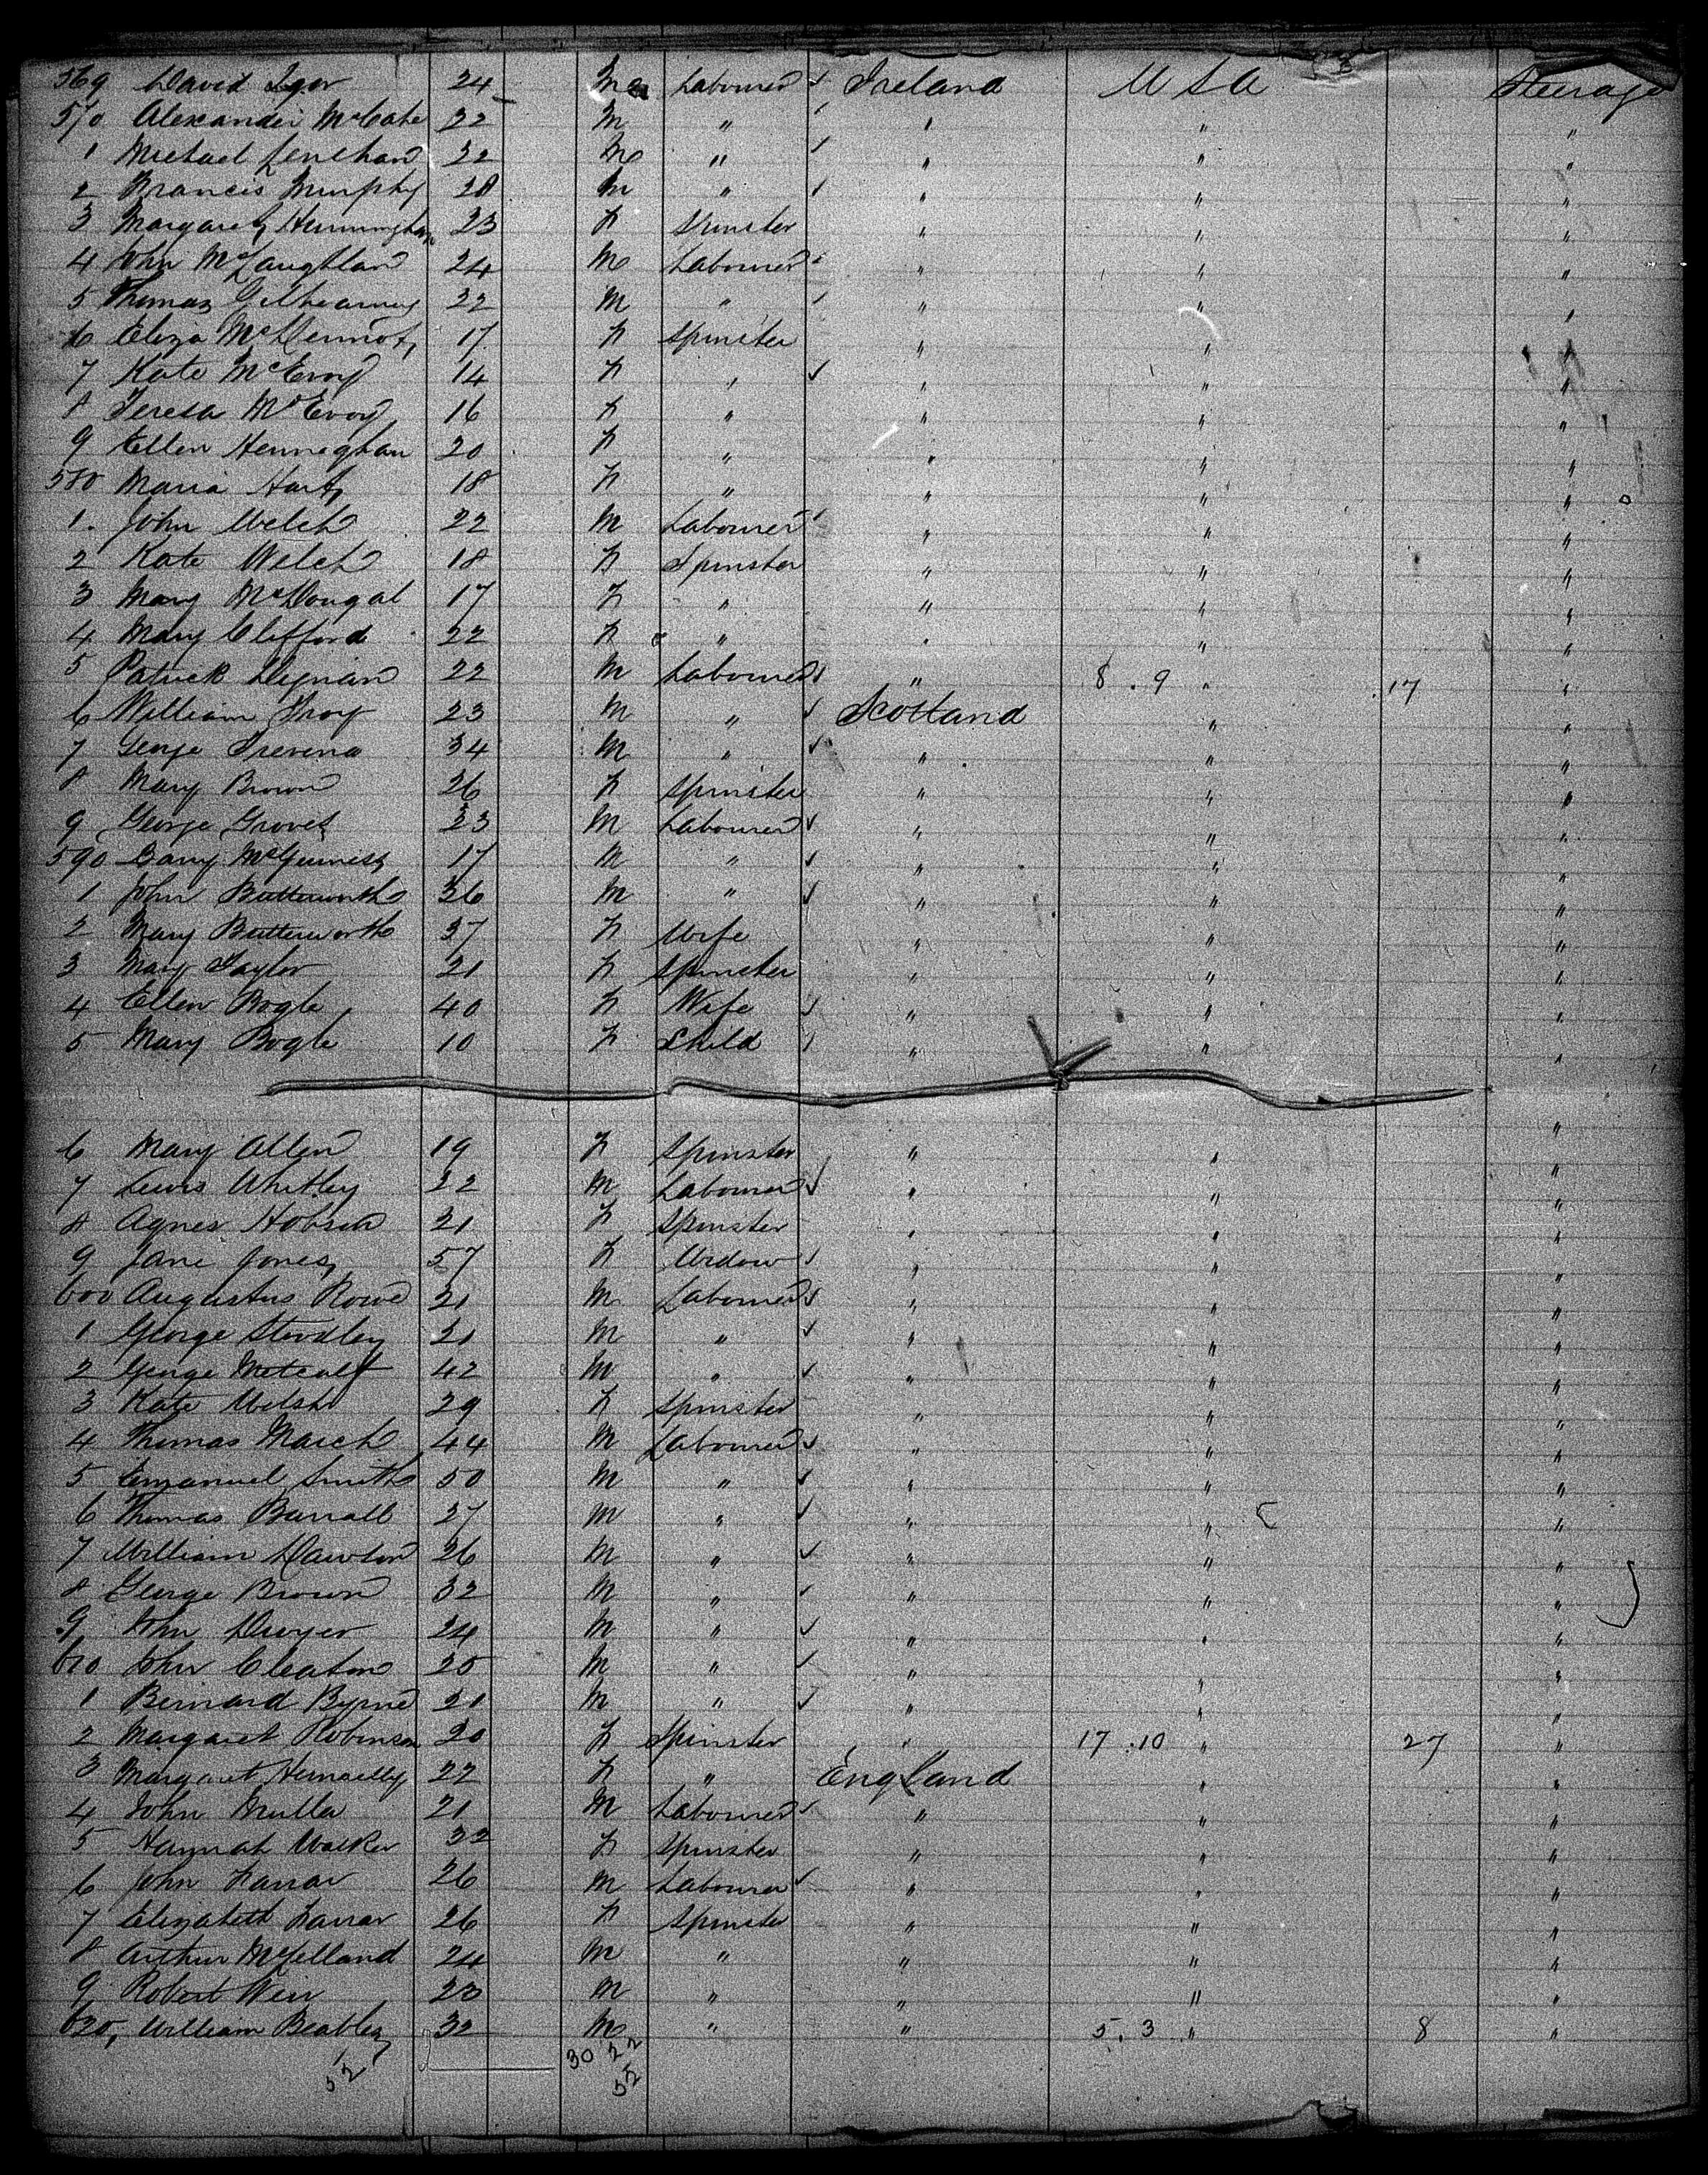 569 David 24 M Labourer ✓ Ireland U S A Steerage
570 Alexander McCabe 22 M " ✓ " " "
1 Michael Lenehan 22 M " ✓ " " "
2 Francis Murphy 28 M " ✓ " " "
3 Margaret 23 F Spinster " " "
4 John McLaughlan 24 M Labourer ✓ " " "
5 Thomas 22 M " ✓ " " "
6 Eliza McDermot 17 F Spinster " " "
7 Kate McEvoy 14 F " ✓ " " "
8 Teresa McEvoy 16 F " " " "
9 Ellen Henneghan 20 F " " " "
580 Maria Hart 18 F " " " "
1. John Welch 22 M Labourer ✓ " " "
2 Kate Welch 18 F Spinster " " "
3 Mary McDougal 17 F " " " "
4 Mary Clifford 22 F " " " "
5 Patrick Degnan 22 M Labourer ✓ " 8 . 9 " 17 "
6 William Troy 23 M " ✓ Scotland " "
7 George Trevena 34 M " ✓ " " "
8 Mary Brown 26 F Spinster " " "
9 George Groves 33 M Labourer ✓ " " "
590 McGuiness 17 M " ✓ " " "
1 John Butterworth 36 M " ✓ " " "
2 Mary Butterworth 37 F Wife " " "
3 Mary Taylor 21 F Spinster " " "
4 Ellen Bogle 40 F Wife ✓ " " "
5 Mary Bogle 10 F Child ✓ " " "
6 Mary Allen 19 F Spinster " " "
7 Lewis Whitley 22 M Labourer ✓ " " "
8 Agnes Hobson 21 F Spinster " " "
9 Jane Jones 57 F Widow ✓ " " "
600 Augustus Rowe 21 M Labourer ✓ " " "
1 George Stoodley 21 M " ✓ " " "
2 George Metcalf 42 M " ✓ " " "
3 Kate Welsh 29 F Spinster " " "
4 Thomas March 44 M Labourer ✓ " " "
5 Emanuel Smith 50 M " ✓ " " "
6 Thomas Barrall 27 M " ✓ " " "
7 William Dawson 26 M " ✓ " " "
8 George Brown 32 M " ✓ " " "
9 John Dwyer 24 M " ✓ " " "
610 John Cleaton 25 M " ✓ " " "
1 Bernard Byrne 21 M " ✓ " " "
2 Margaret Robinson 20 F Spinster " 17 . 10 " 27 "
3 Margaret 22 F " England " "
4 John Muller 21 M Labourer ✓ " " "
5 Hannah Walker 22 F Spinster " " "
6 John Farrar 26 M Labourer ✓ " " "
7 Elizabeth Farrar 26 F Spinster " " "
8 Arthur McLelland 24 M " " " "
9 Robert Weir 23 M " " " "
620 William Beatley 32 M " " 5 . 3 " 8 "
52 30 22
52